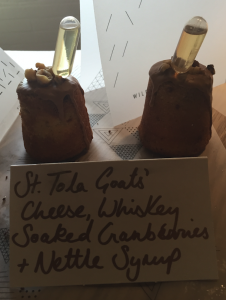 St. Tola Goats'
Cheese, Whiskey
Soaked Cranberries
+ Nettle Syrup